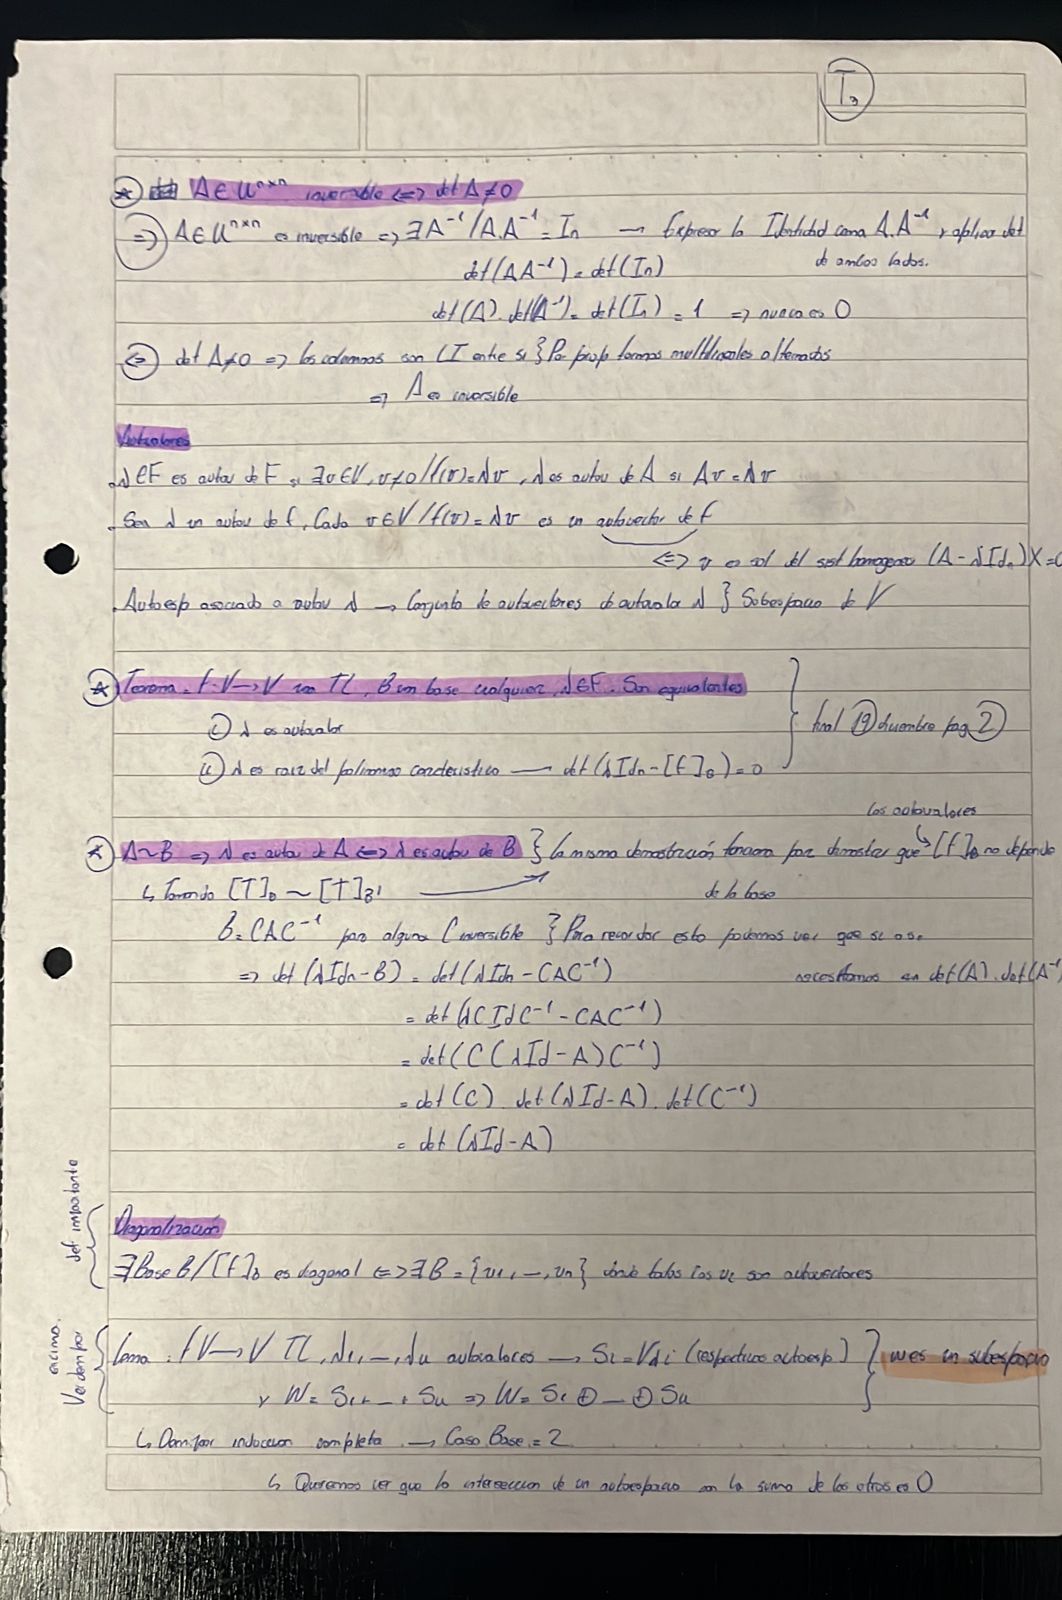 T3
A ∈ K^{n×n} inversible ⟺ det A ≠ 0
⟹) A ∈ K^{n×n} es inversible ⟹ ∃ A⁻¹ / A.A⁻¹ = In → Expresar la Identidad como A.A⁻¹ y aplicar det
de ambos lados.
det(AA⁻¹) = det(In)
det(A).det(A⁻¹) = det(In) = 1 ⟹ nunca es 0
⟸) det A ≠ 0 ⟹ las columnas son LI entre si } Por prop formas multilineales alternadas
⟹ A es inversible
Autovalores
. λ ∈ F es autov de F si ∃ v ∈ V, v ≠ 0 / f(v) = λv, λ es autov de A si Av = λv
. Sea λ un autov de f, Cada v ∈ V / f(v) = λv es un autovector de f
⟺ v es sol del sist homogeneo (A - λIdn)X = 0
. Autoesp asociado a autov λ → Conjunto de autovectores de autovalor λ } Subespacio de V
Teorema: f: V → V una TL, B una base cualquiera, λ ∈ F. Son equivalentes
i) λ es autovalor
final 19 diciembre pag 2
ii) λ es raiz del polinomio caracteristico → det(λIdn - [f]B) = 0
los autovalores
A ~ B ⟹ λ es autov de A ⟺ λ es autov de B } La misma demostración tenemos para demostrar que [f]B no depende
de la base
↳ Tomando [T]B ~ [T]B'
B = CAC⁻¹ para alguna C inversible } Para recordar esto podemos ver que si o si
necesitamos un det(A).det(A⁻¹)
⟹ det(λIdn - B) = det(λIdn - CAC⁻¹)
= det(λCIdC⁻¹ - CAC⁻¹)
= det(C(λId - A)C⁻¹)
= det(C).det(λId - A).det(C⁻¹)
= det(λId - A)
def importante
Diagonalización
∃ Base B / [f]B es diagonal ⟺ ∃ B = {v1, ..., vn} donde todos los vi son autovectores
Ver dem por
encima.
Lema: f V → V TL, λ1, ..., λk autovalores → Si = Vλi (respectivos autoesp) } W es un subespacio
y W = S1 + ... + Sk ⟹ W = S1 ⊕ ... ⊕ Sk
↳ Dem por induccion completa → Caso Base = 2
↳ Queremos ver que la interseccion de un autoespacio con la suma de los otros es 0